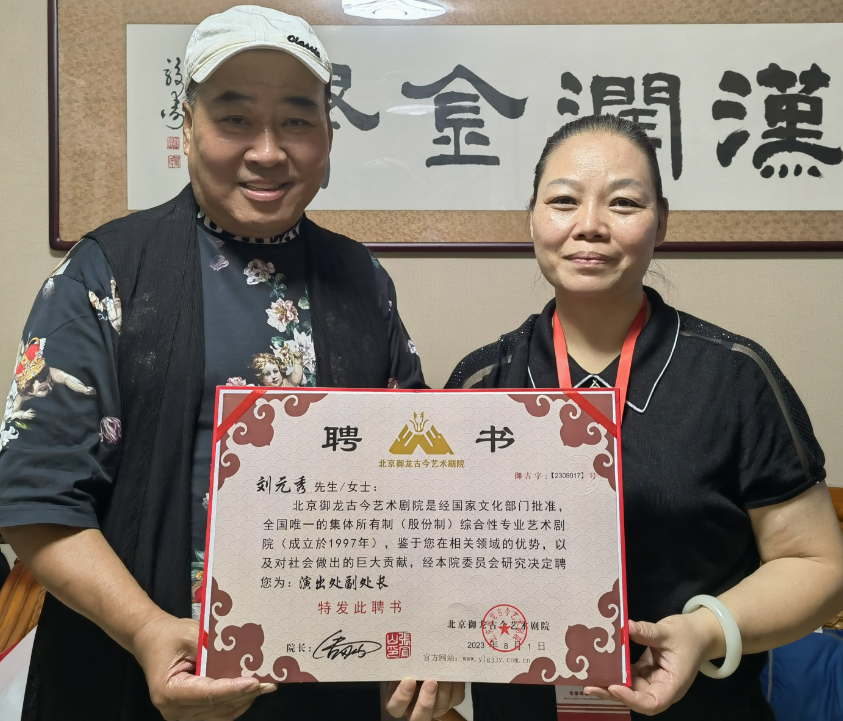 Classic
漢潤金
聘书
北京御龙古今艺术剧院
御古字:【2309017】号
刘元秀 先生/女士:
北京御龙古今艺术剧院是经国家文化部门批准,
全国唯一的集体所有制（股份制）综合性专业艺术剧
院（成立於1997年）,鉴于您在相关领域的优势,以
及对社会做出的巨大贡献,经本院委员会研究决定聘
您为:演出处副处长
特发此聘书
北京御龙古今艺术剧院
2023年8月1日
院长:
官方网站:www.ylgjjy.com.cn